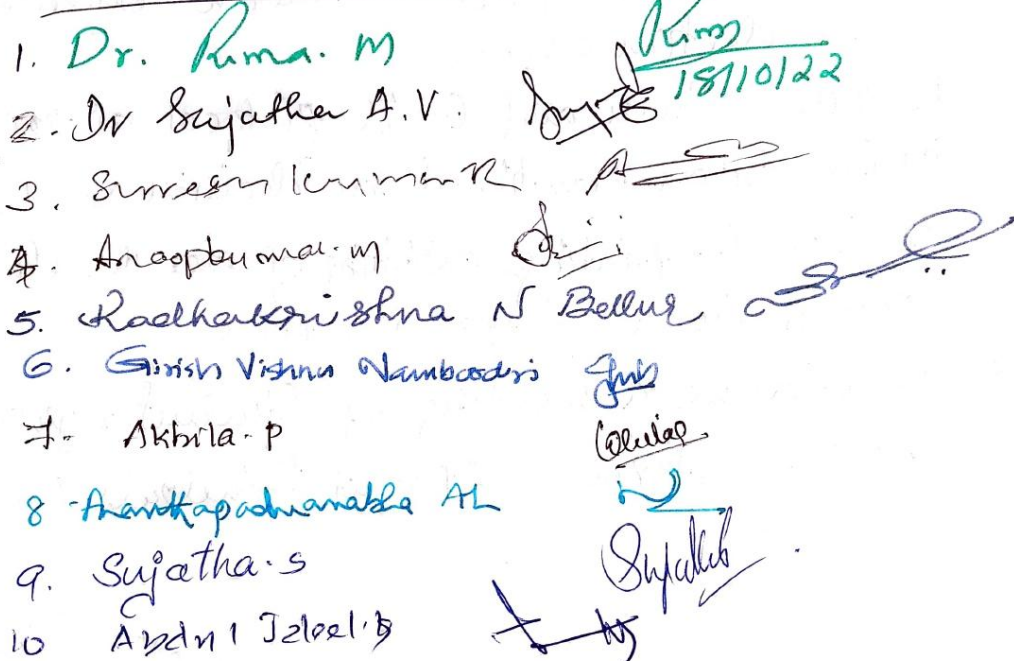 1. Dr. Rima. M Rima 18/10/22
2. Dr Sujatha A.V.
3. Sureshkumar R
4. Anoopkumar. M
5. Radhakrishna N Bellur
6. Girish Vishnu Namboodiri
7. Akhila. P
8 Ananthapadmanabha AL
9. Sujatha. S
10 Abdul Jaleel. B